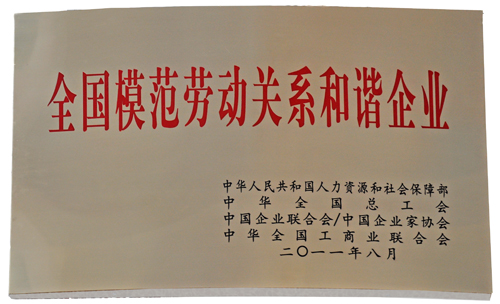 全国模范劳动关系和谐企业
中华人民共和国人力资源和社会保障部
中华全国总工会
中国企业联合会/中国企业家协会
中华全国工商业联合会
二〇一一年八月